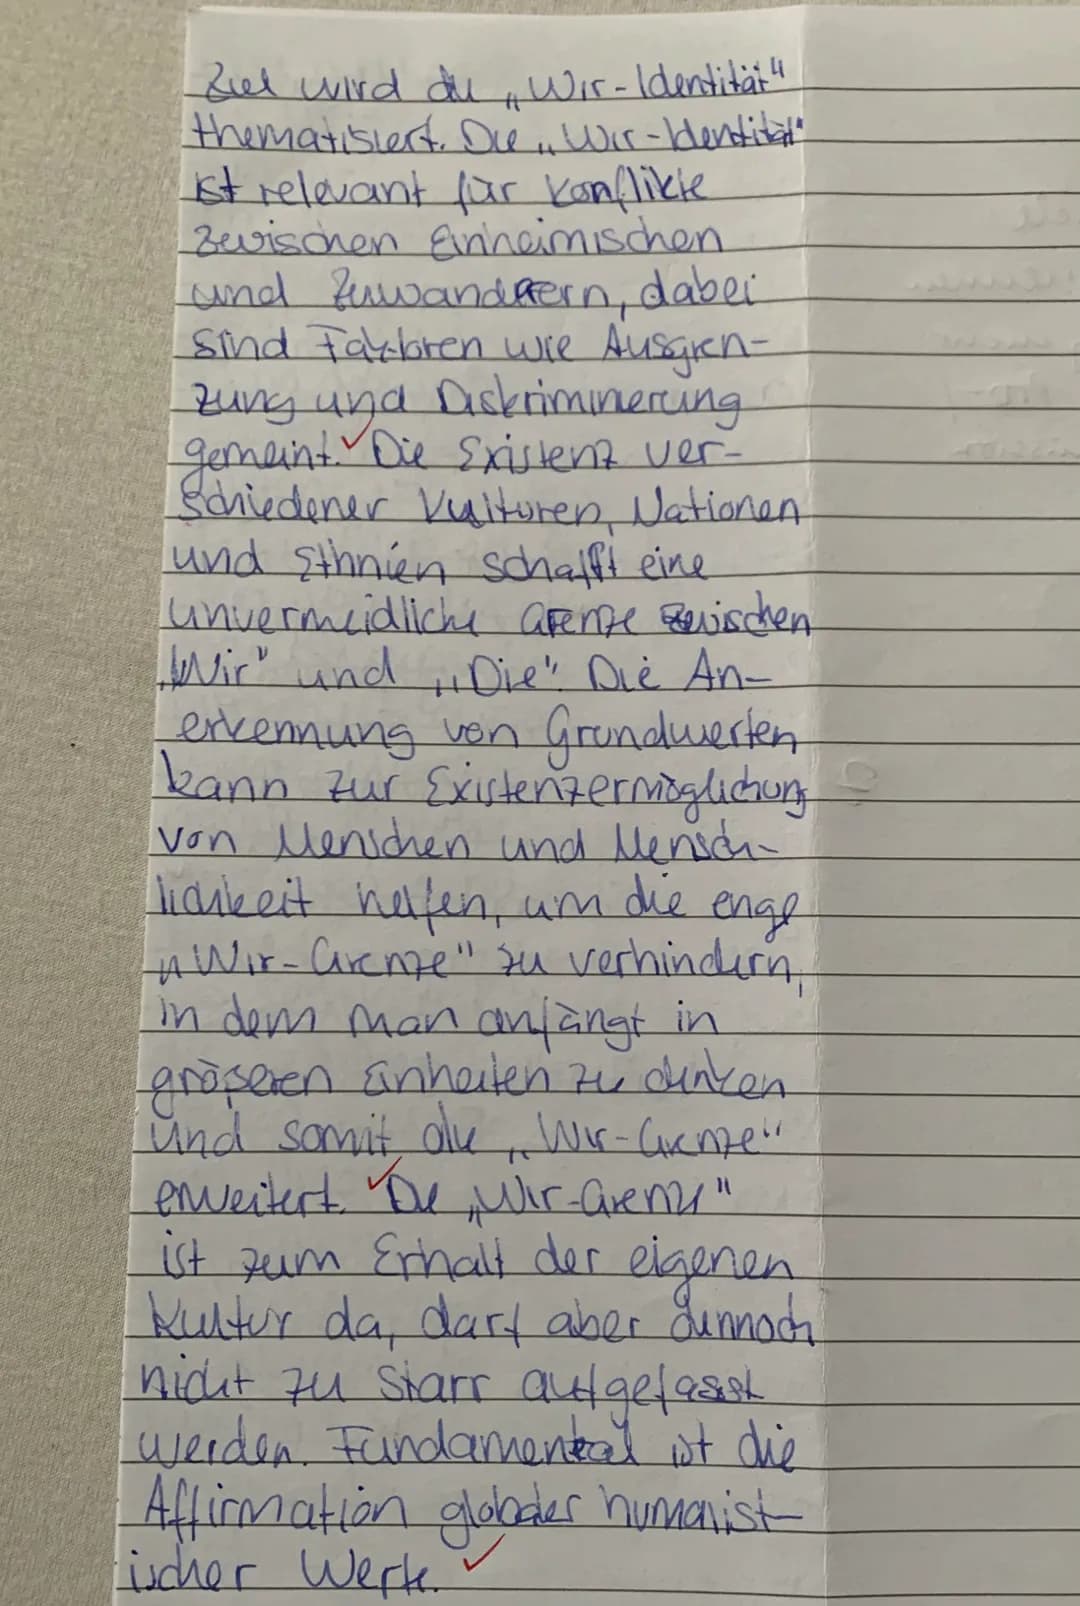 Ziel wird die „Wir-Identität"
thematisiert. Die „Wir-Identität"
ist relevant für Konflikte
zwischen Einheimischen
und Zuwanderern, dabei
sind Faktoren wie Ausgren-
zung und Diskriminierung
gemeint. Die Existenz ver-
schiedener Kulturen, Nationen
und Ethnien schafft eine
unvermeidliche Grenze zwischen
„Wir" und „Die". Die An-
erkennung von Grundwerten
kann zur Existenzermöglichung
von Menschen und Mensch-
lichkeit helfen, um die enge
„Wir-Grenze" zu verhindern,
in dem man anfängt in
größeren Einheiten zu denken
und somit die „Wir-Grenze"
erweitert. Die „Wir-Grenze"
ist zum Erhalt der eigenen
Kultur da, darf aber dennoch
nicht zu starr aufgefasst
werden. Fundamental ist die
Affirmation globaler humanist-
ischer Werte.